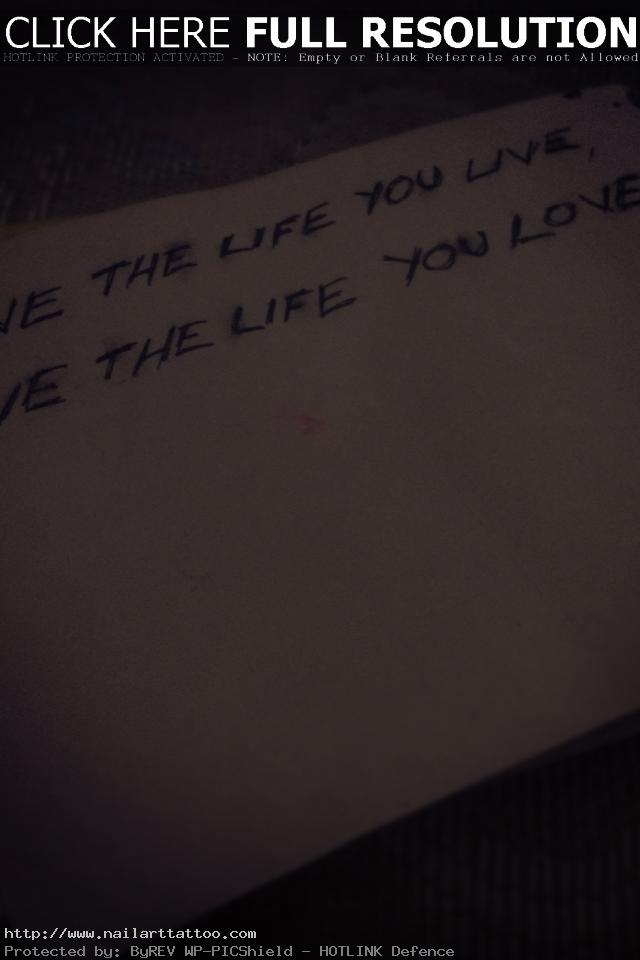 CLICK HERE FULL RESOLUTION
HOTLINK PROTECTION ACTIVATED - NOTE: Empty or Blank Referrals are not Allowed
VE THE LIFE YOU LIVE,
VE THE LIFE YOU LOVE
http://www.nailarttattoo.com
Protected by: ByREV WP-PICShield - HOTLINK Defence